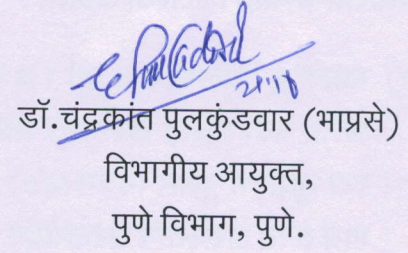 डॉ.चंद्रकांत पुलकुंडवार (भाप्रसे)
विभागीय आयुक्त,
पुणे विभाग, पुणे.